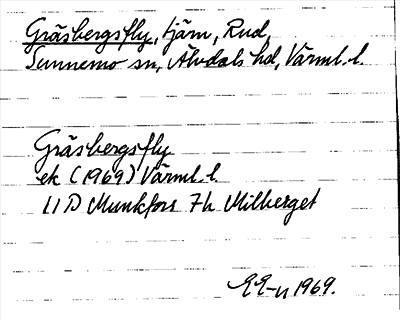 Gräsbergsfly, tjärn, Rud,
Sunnemo sn, Älvdals hd, Värml. l.
Gräsbergsfly
ek (1969) Värml. l.
11 D Munkfors 7h Milberget
1969.